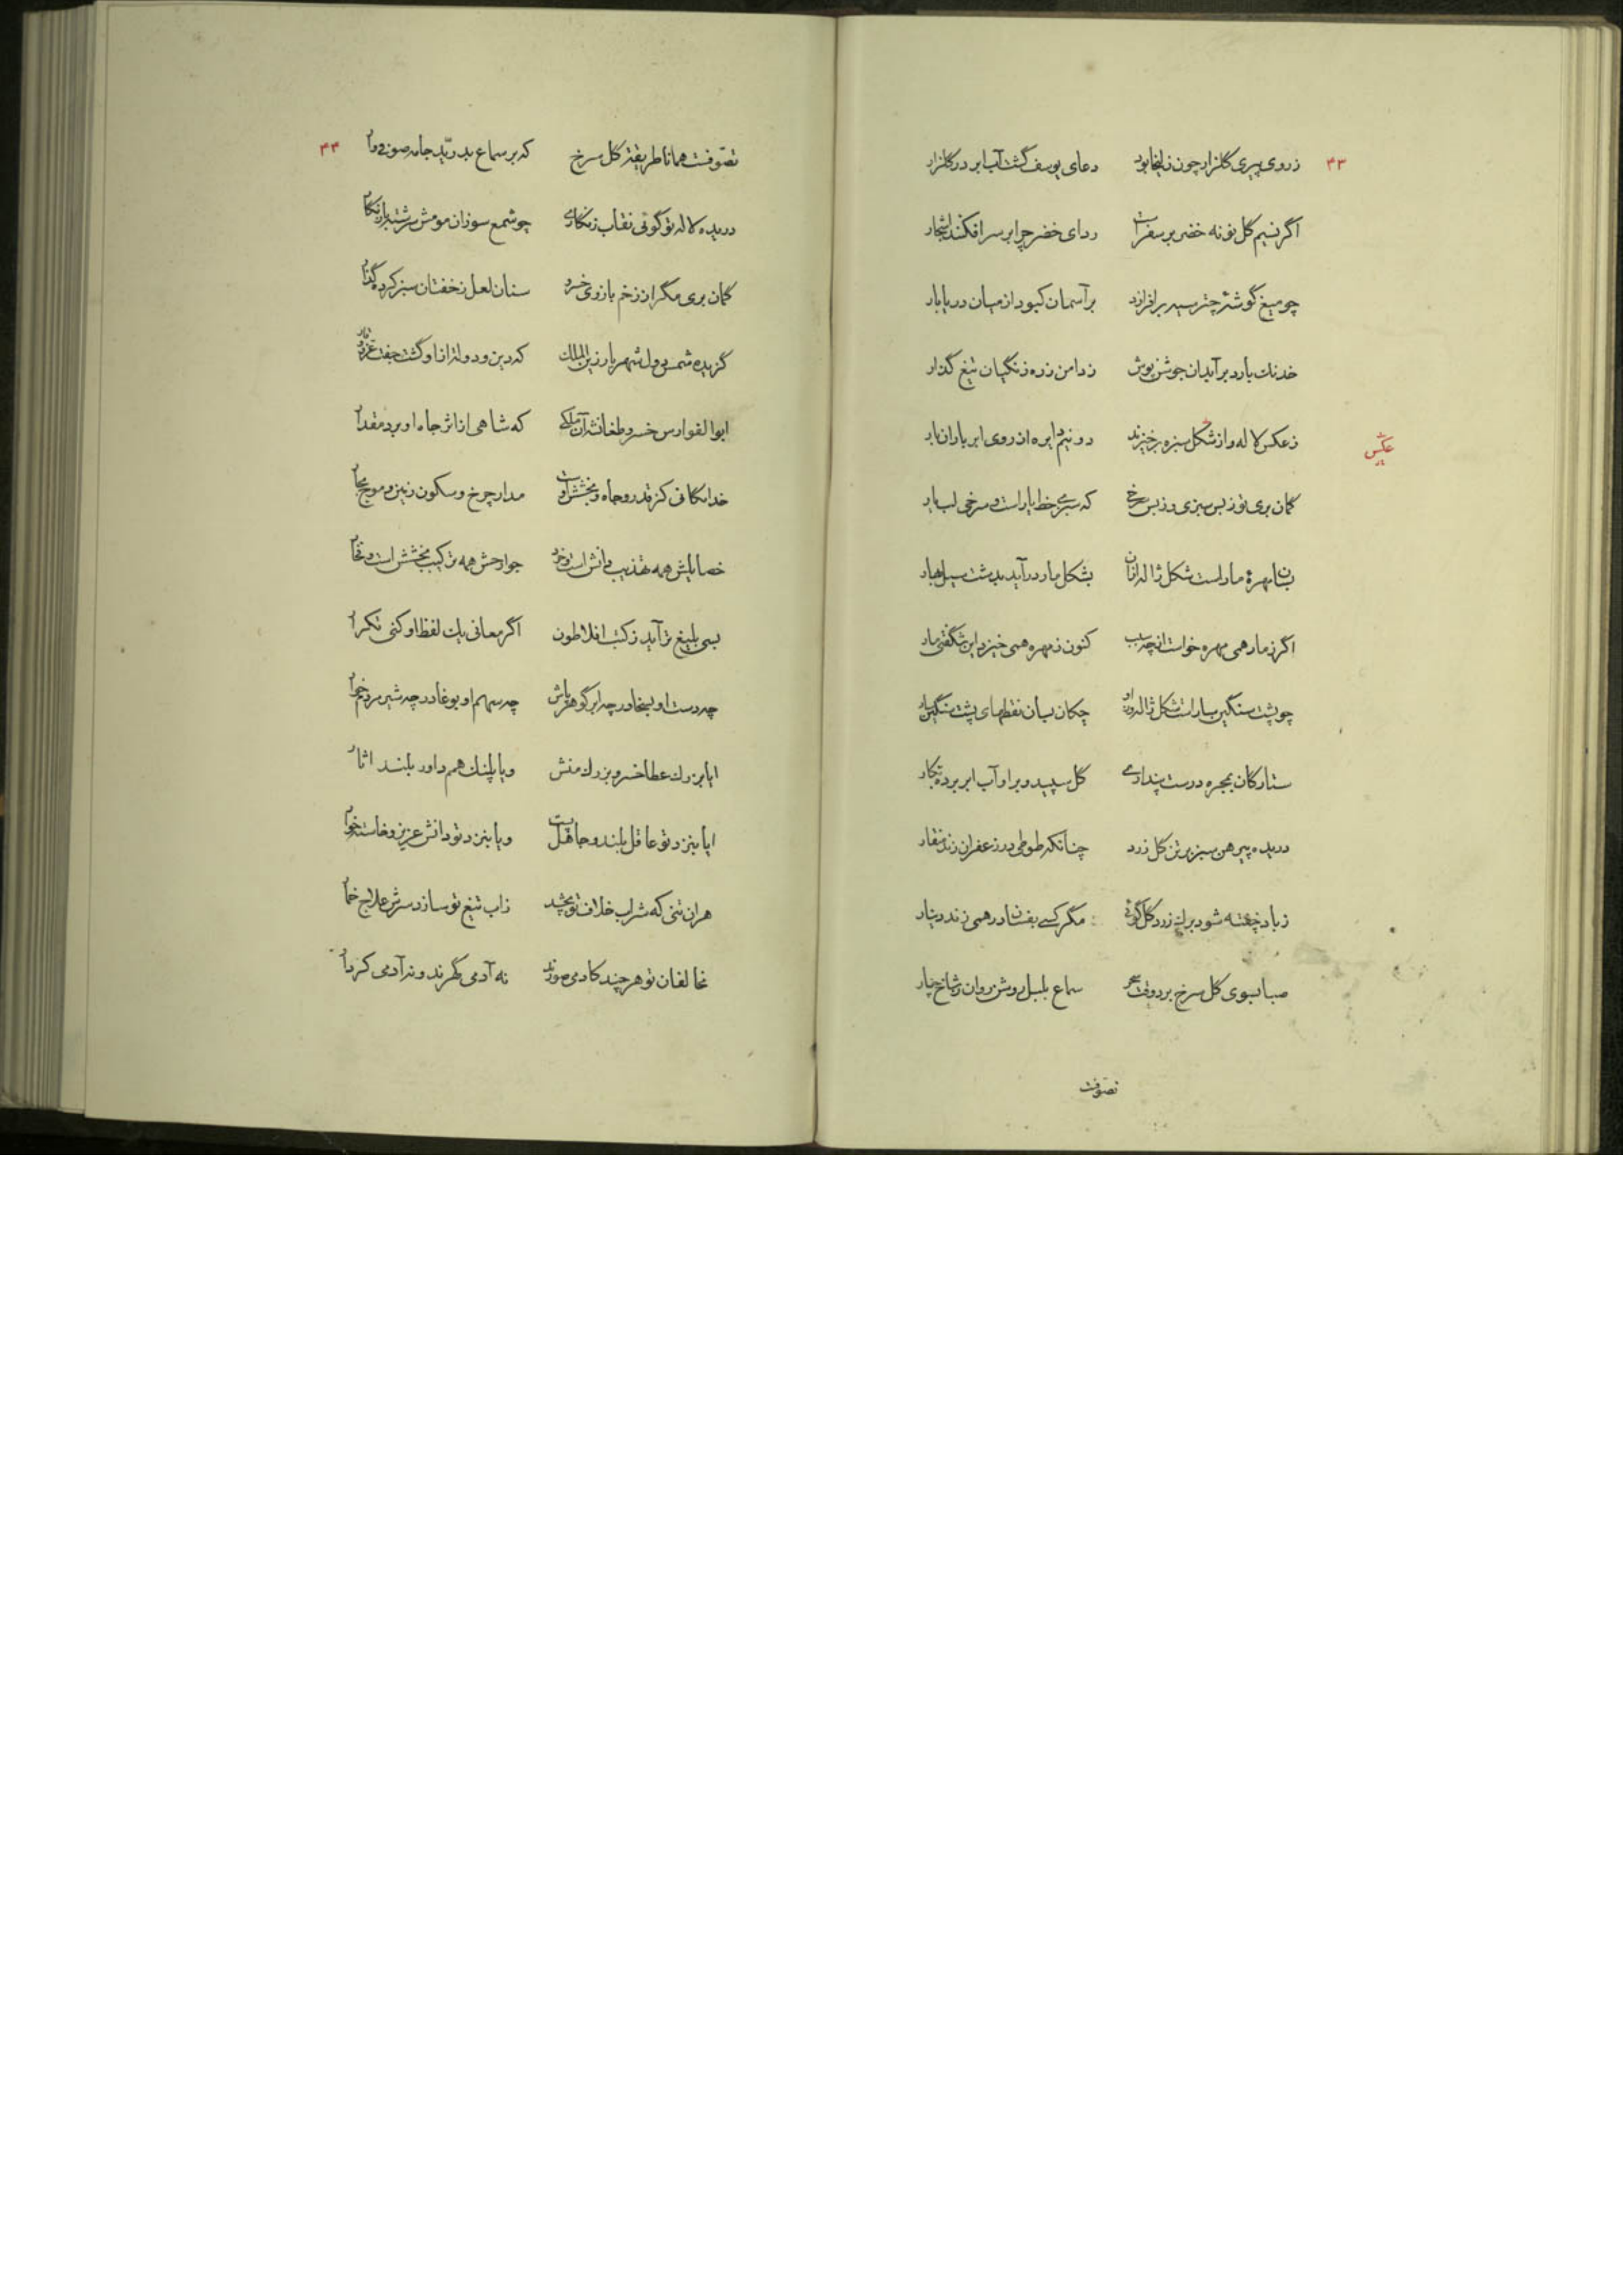 ۴۳
ز روی پیری گلزار چون زلیخا بود دعای یوسف گشت آب ابر در گلزار
اگر نسیم گل نو نه خضر بر سفر است ردای خضر چرا بر سر افکند اشجار
چو میغ گوشهٔ چتر سیه برافرازد بر آسمان کبود از میان دریابار
خدنک بارد بر آبدان جوشن پوش ز دامن زره زنگیان تیغ گذار
ز عکس لاله و از شکل سبزه برخیزند دو نیم دایره از روی ابر باران بار
عکس
گمان بری تو ز بس سبزی و ز بس سرخی که سبزی خط یار است و سرخی لب یار
بسان مهرهٔ مار است شکل ژاله از آن بشکل مار درآید بدشت سیل بهار
اگر ز مار همی مهره خواست از چه سبب کنون ز مهره همی خیزد این شگفتی مار
چو پشت سنگین سار است شکل ژاله و زو چکان بسان نقطهای پشت سنگین سار
ستارگان بمجره درست پنداری گل سپید و بر او آب ابر برده بکار
دریده پیرهن سبز بر تن گل زرد چنانکه طوطی در زعفران زند منقار
ز باد خفته شود برک زرد گل گوئی مگر کسی بفسان در همی زند دینار
صبا ببوی گل سرخ بر دو وقت سحر سماع بلبل روشن روان ز شاخ چنار
تصوفست
۴۴
تصوفست همانا طریقت گل سرخ که بر سماع بدرید جامه صوفی وار
دریده لاله تو گوئی نقاب زنگاری چو شمع سوزان مومش سرشته با زنگار
گمان بری مگر از زخم بازوی خسرو سنان لعل ز خفتان سبز کرده گذار
گزیده شمس دول شهریار زین الملک که دین و دولت از او گشت جفت عز و وقار
ابوالفوارس خسرو طغانشه آن ملکی که شاهی از اثر جاه او برد مقدار
خدایگانی کز قدر و جاه و بخشش اوست مدار چرخ و سکون زمین و موج بحار
خصایلش همه تهذیب دانش است و خرد جوارحش همه ترکیب بخشش است و فخار
بسی بلیغ تر آید ز کتب افلاطون اگر معانی یک لفظ او کنی تکرار
چه دست او بسخا در چه ابر گوهر پاش چه سهم او بوغا در چه شیر مردم خوار
ایا بزرک عطا خسرو بزرک منش و یا پلنک همم داور بلند اثار
ایا بنزد تو عاقل بلند و جاهل پست و یا بنزد تو دانش عزیز و خاسته خوار
هر آن تنی که شراب خلاف تو بچشد ز آب تیغ تو سازد سرش علاج خمار
مخالفان تو هر چند کادمی صورند نه آدمی گهرند و نه آدمی کردار